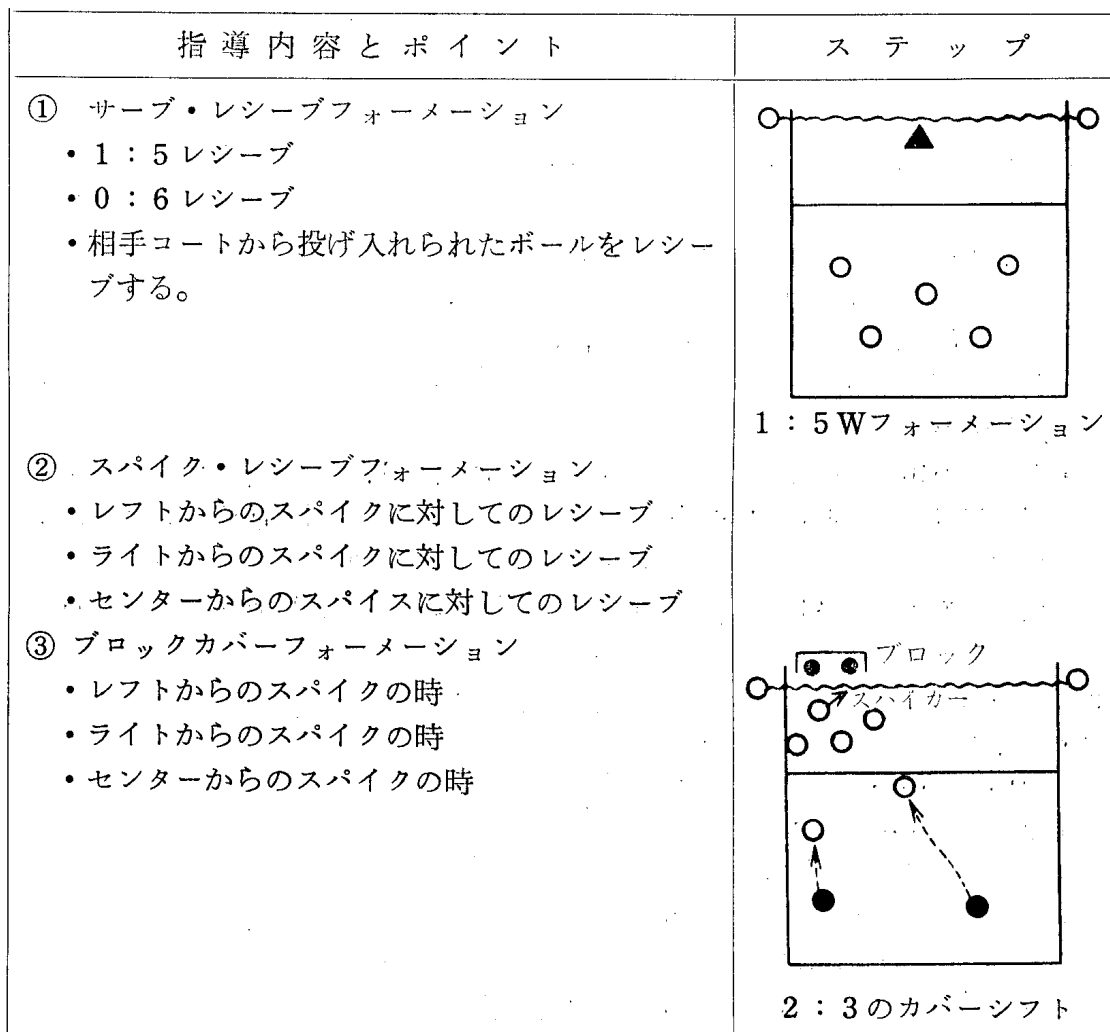 指導内容とポイント
ステップ
① サーブ・レシーブフォーメーション
・1：5レシーブ
・0：6レシーブ
・相手コートから投げ入れられたボールをレシー
ブする。
1：5Wフォーメーション
② スパイク・レシーブフォーメーション
・レフトからのスパイクに対してのレシーブ
・ライトからのスパイクに対してのレシーブ
・センターからのスパイスに対してのレシーブ
③ ブロックカバーフォーメーション
・レフトからのスパイクの時
・ライトからのスパイクの時
・センターからのスパイクの時
ブロック
スパイカー
2：3のカバーシフト